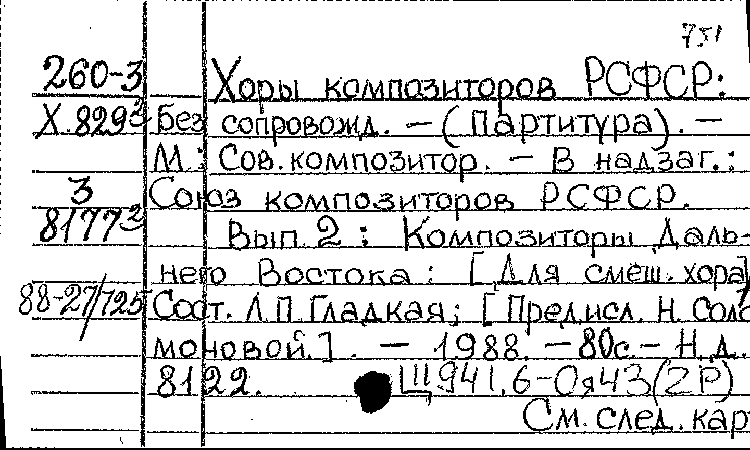 751
260-3 Хоры композиторов РСФСР:
X.829 Без сопровожд. — (Партитура). —
М.: Сов. композитор. — В надзаг.:
3 Союз композиторов РСФСР.
8177 Вып. 2: Композиторы Даль-
него Востока: [Для смеш. хора]
88-27/725 Сост. Л.П. Гладкая; [Предисл. Н. Соло
моновой.]. — 1988. — 80с. — Н.д.
8122. Щ941.6-0я43(2Р)
См. след. кар